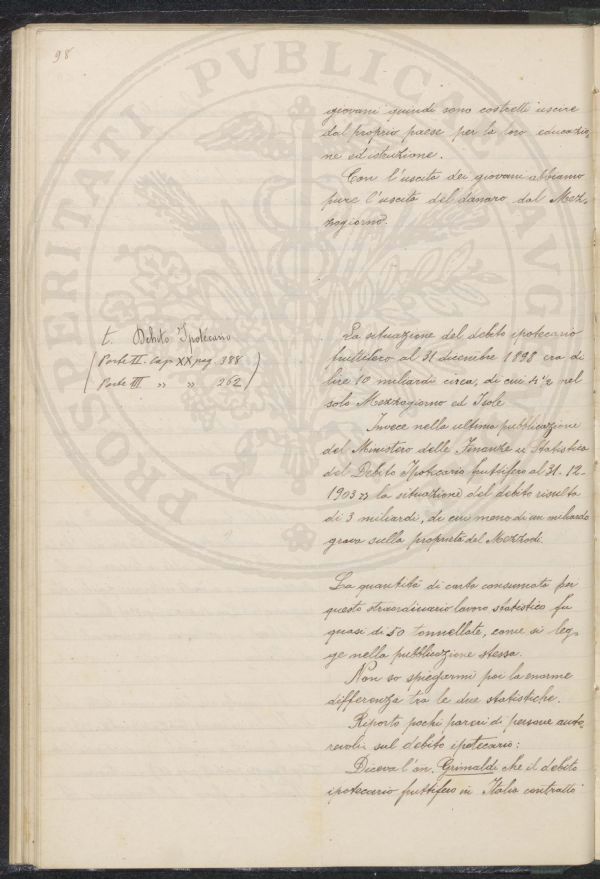 98
giovani quindi sono costretti uscire
dal proprio paese per la loro educazio-
ne ed istruzione.
Con l'uscita dei giovani abbiamo
pure l'uscita del danaro dal Mez-
zogiorno.
t. Debito Ipotecario
(Parte II Cap XX pag. 388
Parte III " " 262)
La situazione del debito ipotecario
fruttifero al 31 dicembre 1898 era di
lire 10 miliardi circa, di cui 4½ nel
solo Mezzogiorno ed Isole
Invece nella ultima pubblicazione
del Ministero delle Finanze "Statistica
del Debito Ipotecario fruttifero al 31-12-
1903" la situazione del debito risulta
di 3 miliardi, di cui meno di un miliardo
grava sulla proprietà del Mezzodì.
La quantità di carta consumata per
questo straordinario lavoro statistico fu
quasi di 50 tonnellate, come si leg-
ge nella pubblicazione stessa.
Non so spiegarmi poi la enorme
differenza tra le due statistiche.
Riporto pochi pareri di persone auto-
revoli sul debito ipotecario:
Diceva l'on. Grimaldi che il debito
ipotecario fruttifero in Italia contratto
PROSPERITATI PVBLICAE AVG